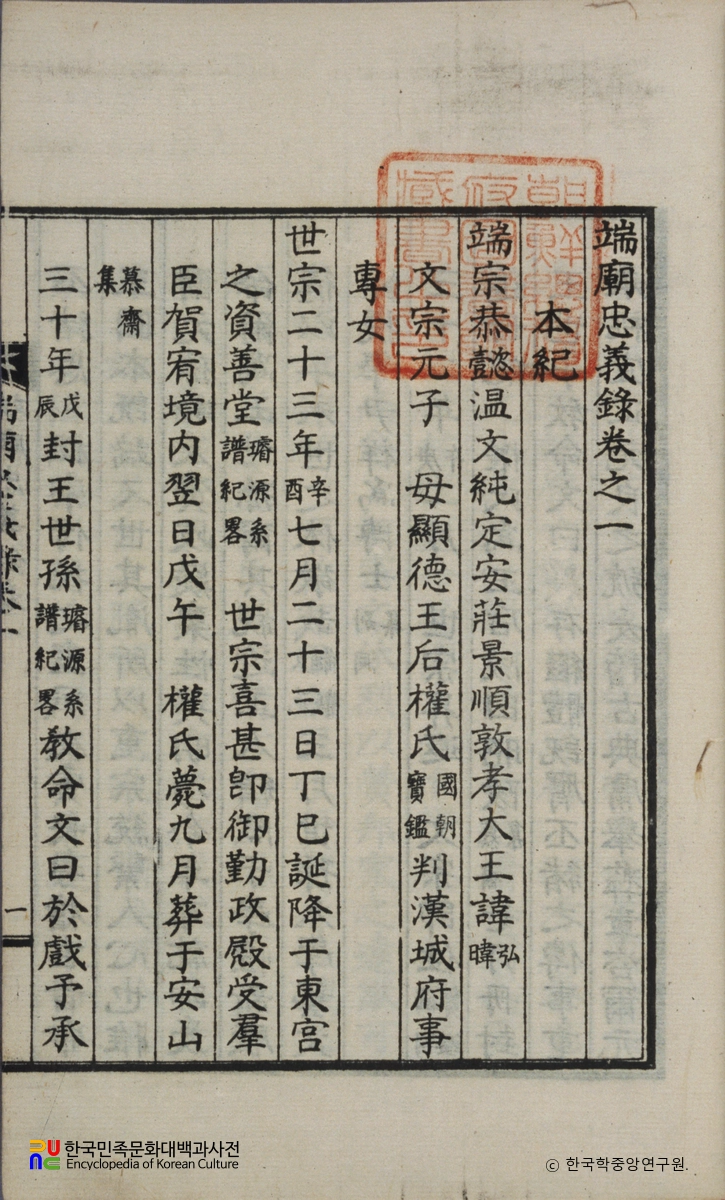 端廟忠義錄卷之一
本紀
端宗恭懿温文純定安莊景順敦孝大王諱弘暐
文宗元子 母顯德王后權氏國朝寶鑑判漢城府事
專女
世宗二十三年辛酉七月二十三日丁巳誕降于東宮
之資善堂璿源系譜紀畧 世宗喜甚卽御勤政殿受羣
臣賀宥境內翌日戊午 權氏薨九月葬于安山
慕齋集
三十年戊辰封王世孫璿源系譜紀畧敎命文曰於戲予承
一
한국민족문화대백과사전
Encyclopedia of Korean Culture
ⓒ 한국학중앙연구원.